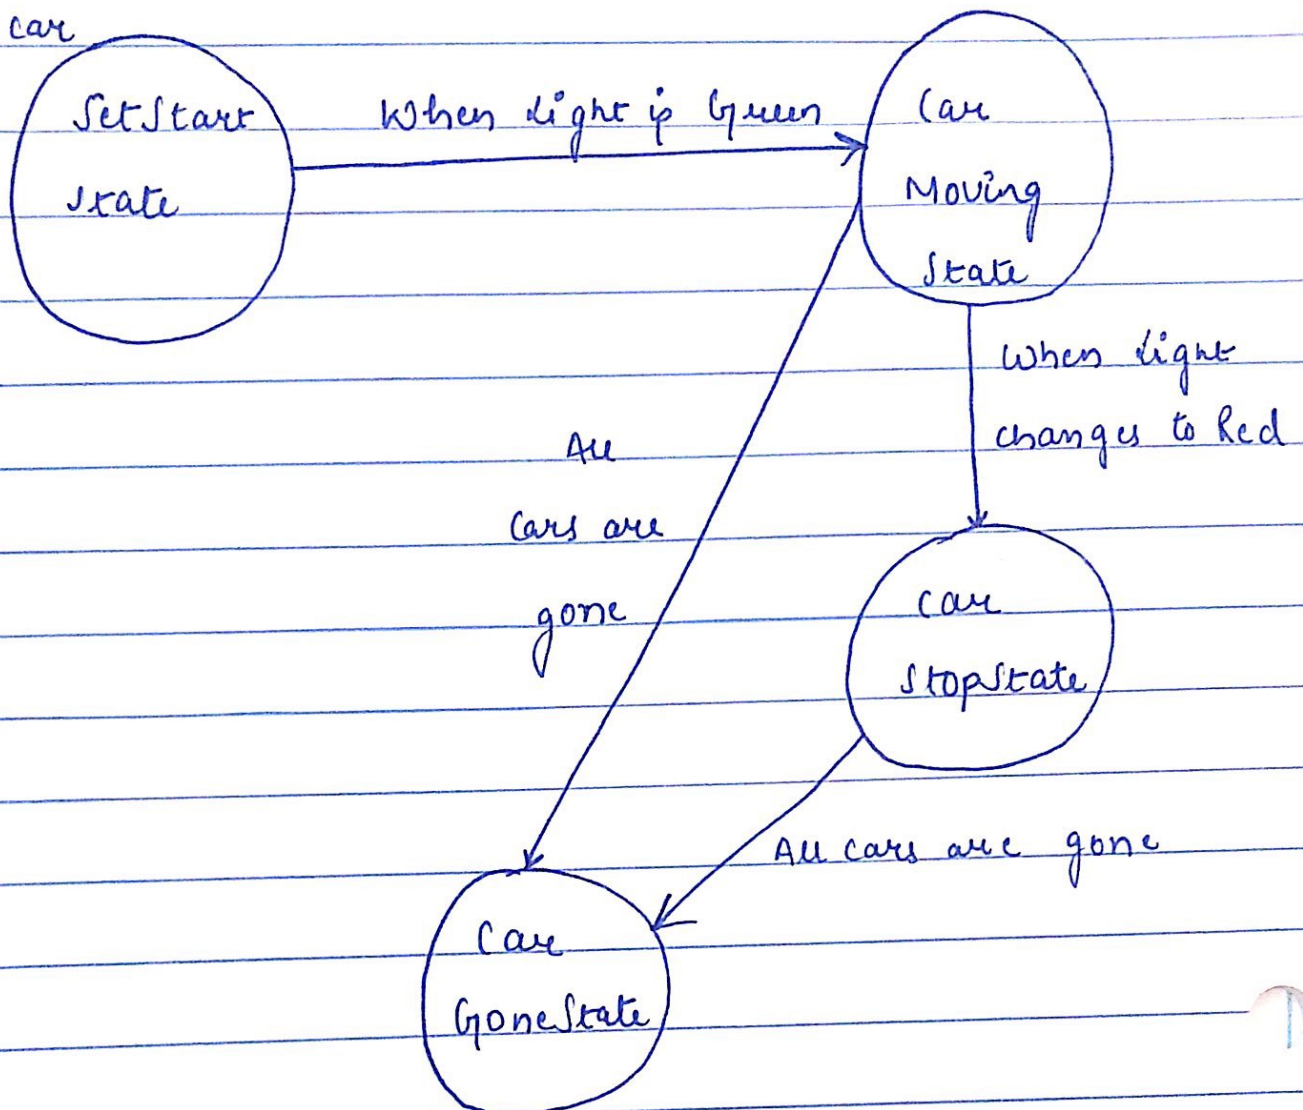 car
SetStart
State
When Light is Green
Car
Moving
State
When Light
changes to Red
All
Cars are
gone
Car
StopState
All cars are gone
Car
GoneState